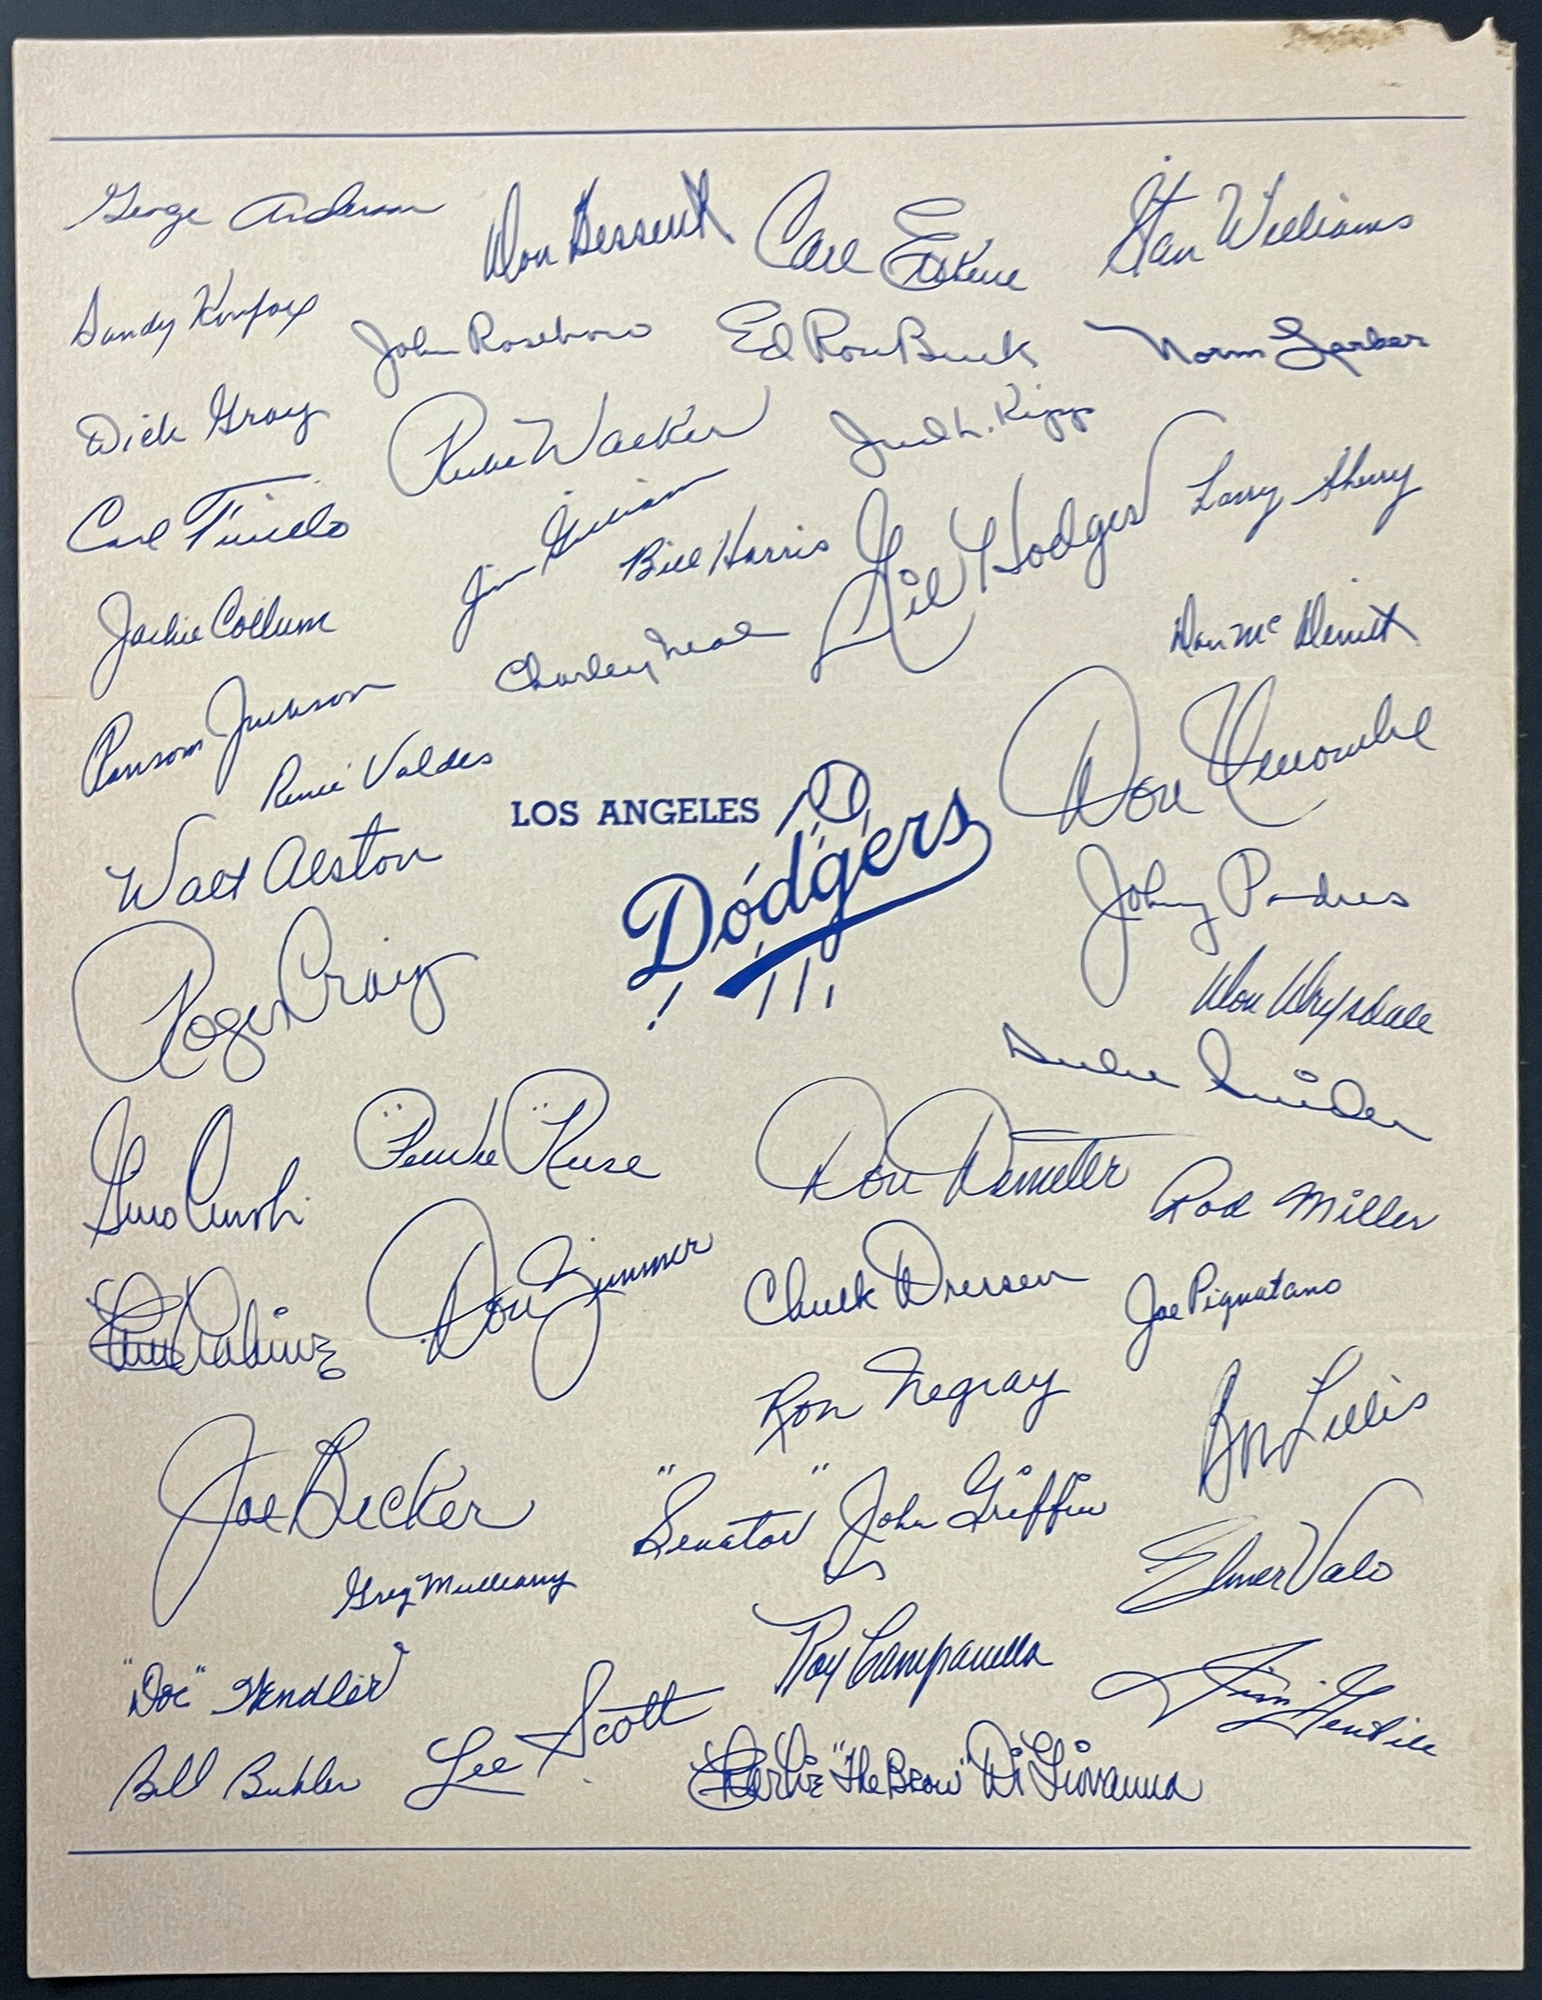 George Anderson
Don Bessent
Carl Erskine
Stan Williams
Sandy Koufax
John Roseboro
Ed Roebuck
Norm Sherber
Dick Gray
Rube Walker
Fred L. Kipp
Carl Furillo
Jim Gilliam
Bill Harris
Gil Hodges
Larry Sherry
Jackie Collum
Charley Neal
Don McDevitt
Ransom Jackson
René Valdes
Don Newcombe
Walt Alston
LOS ANGELES
Dodgers
Johnny Podres
Roger Craig
Don Drysdale
Duke Snider
Gino Cimoli
"PeeWee" Reese
Don Demeter
Rod Miller
Don Zimmer
Chuck Dressen
Joe Pignatano
Ron Negray
Bob Lillis
Joe Becker
"Senator" John Griffin
Elmer Valo
Greg Mulleavy
Roy Campanella
"Doc" Wendler
Lee Scott
Jim Gentile
Bill Buhler
Charlie "The Brow" DiGiovanna